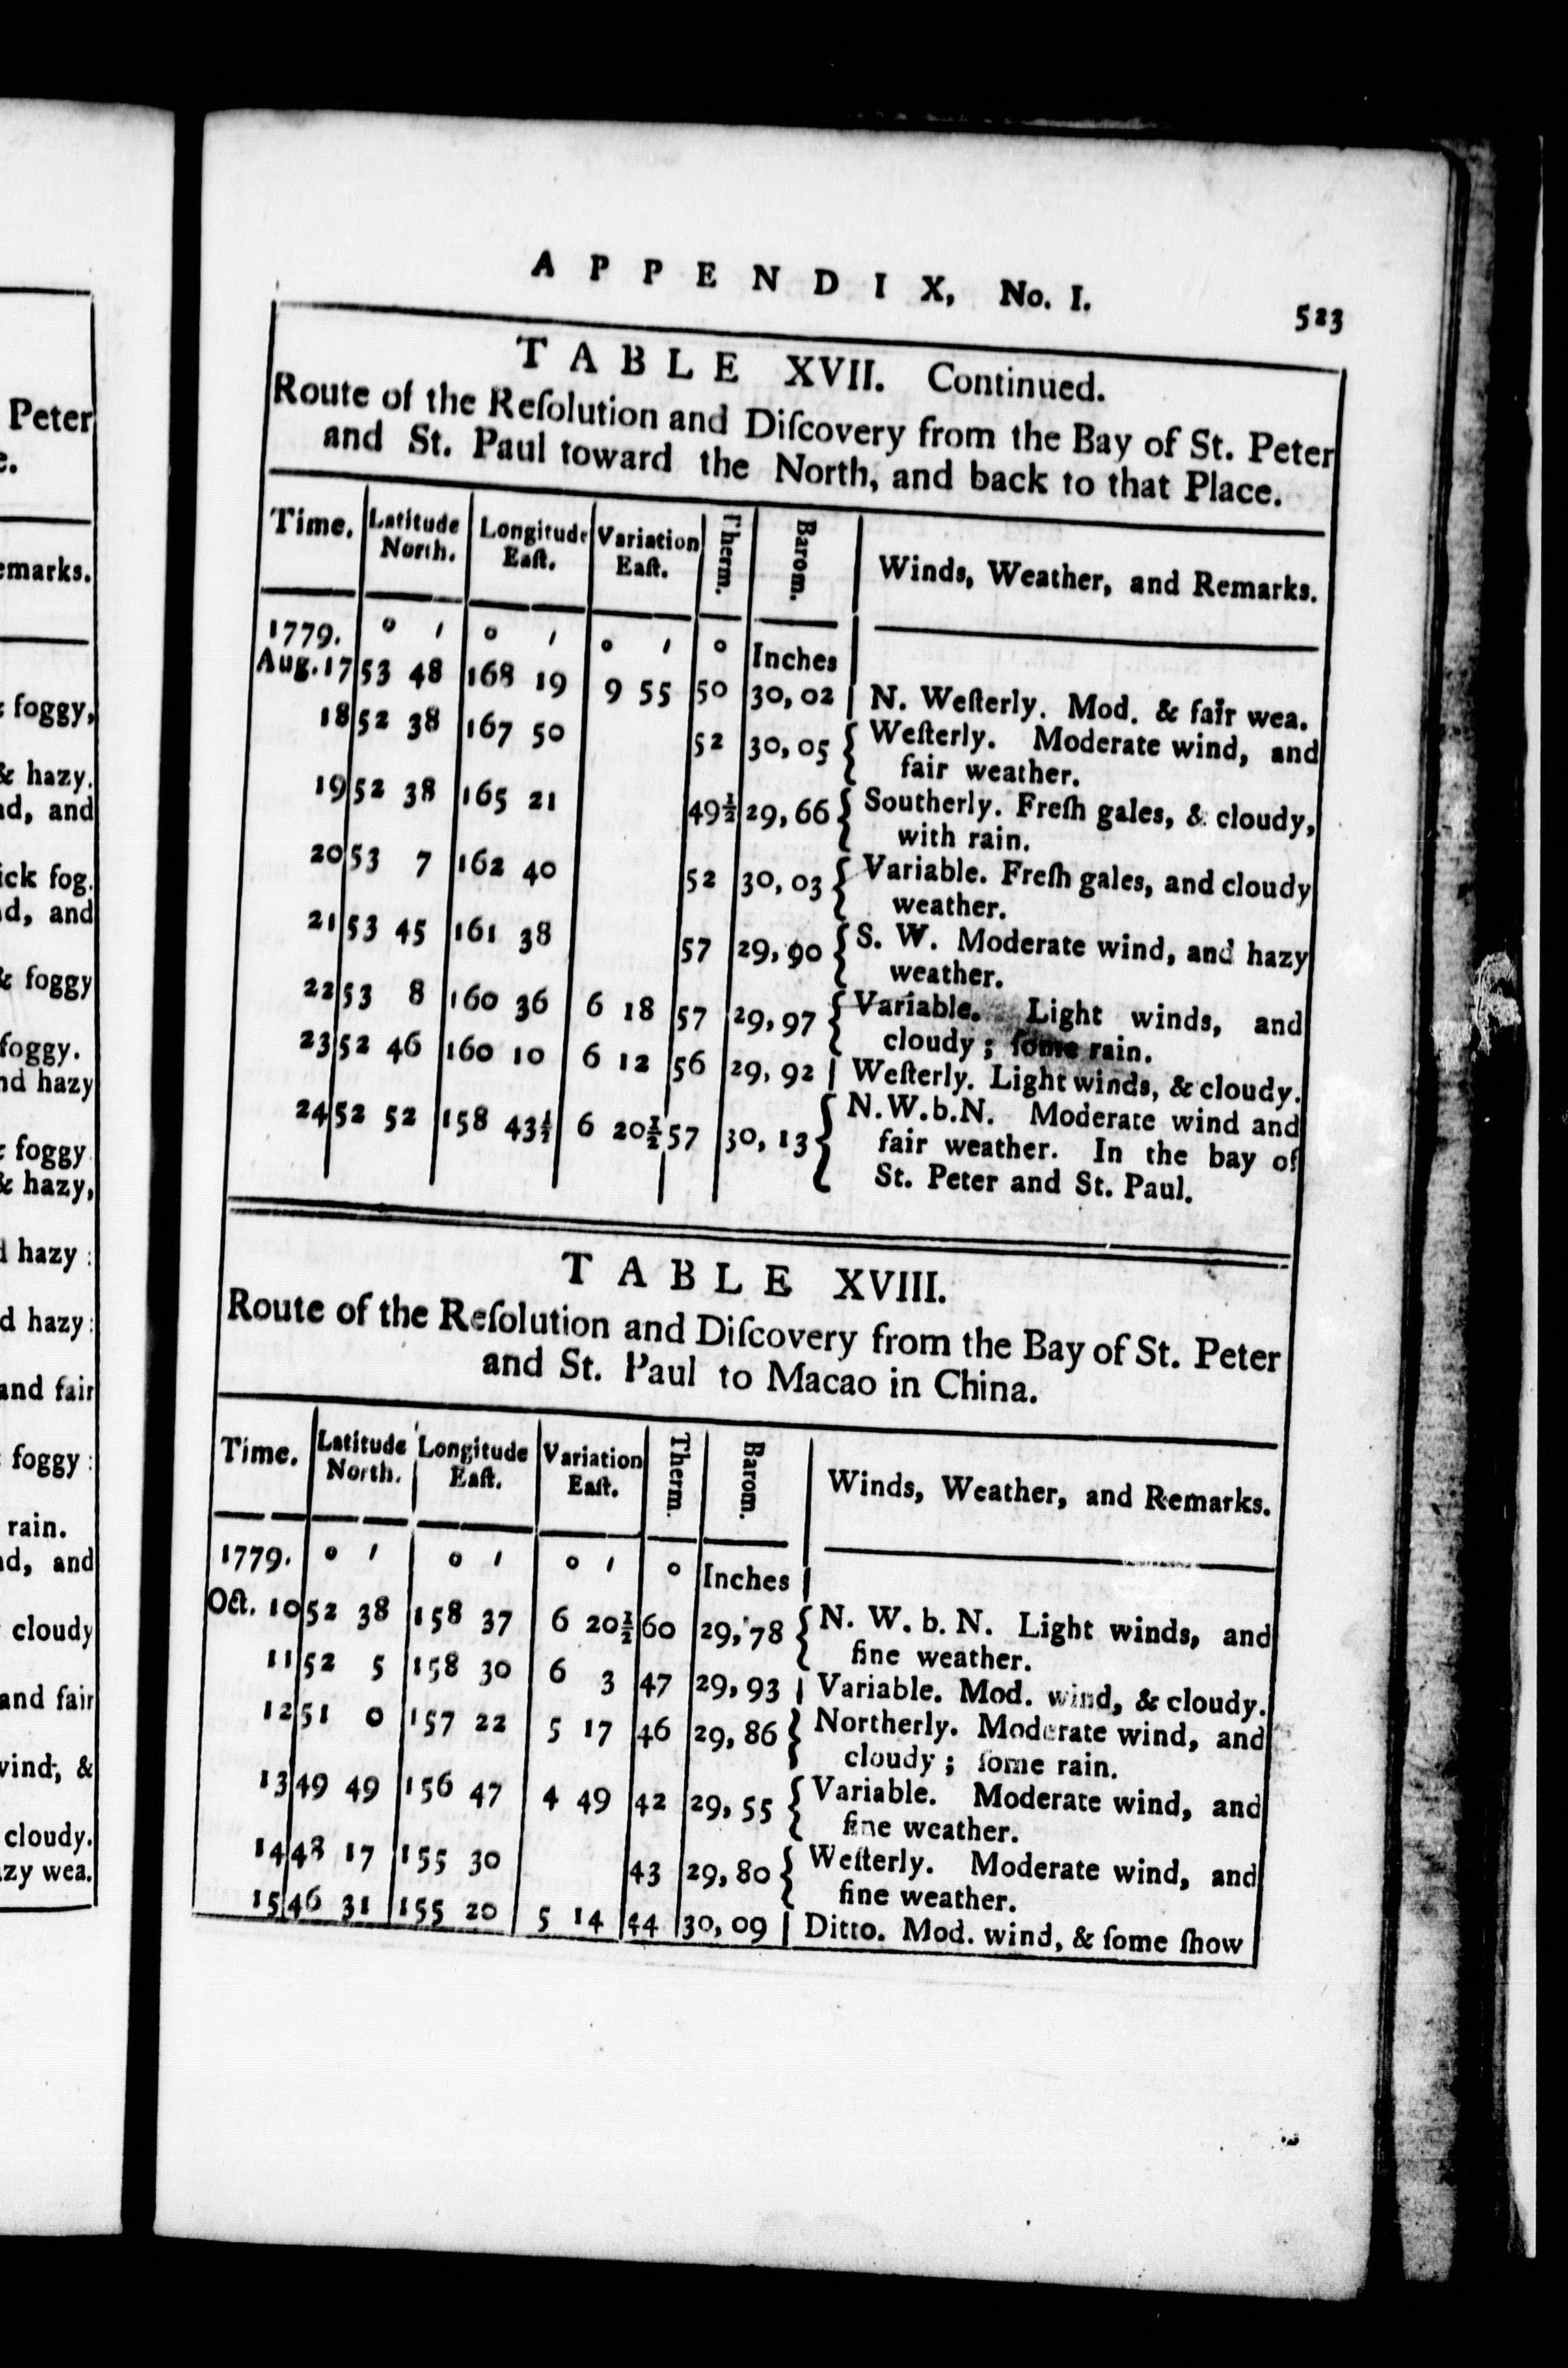 Peter
e.
emarks.
: foggy,
& hazy.
nd, and
ick fog.
nd, and
& foggy
foggy.
nd hazy
: foggy
& hazy,
d hazy :
d hazy :
and fair
: foggy :
rain.
nd, and
cloudy
and fair
wind, &
cloudy.
azy wea.
APPENDIX, No. I. 523
TABLE XVII. Continued.
Route of the Reſolution and Diſcovery from the Bay of St. Peter
and St. Paul toward the North, and back to that Place.
Time. Latitude North. Longitude Eaſt. Variation Eaſt. Therm. Barom. Winds, Weather, and Remarks.
1779. ° ′ ° ′ ° ′ ° Inches
Aug. 17 53 48 168 19 9 55 50 30,02 N. Weſterly. Mod. & fair wea.
18 52 38 167 50 52 30,05 { Weſterly. Moderate wind, and
fair weather.
19 52 38 165 21 49½ 29,66 { Southerly. Freſh gales, & cloudy,
with rain.
20 53 7 162 40 52 30,03 { Variable. Freſh gales, and cloudy
weather.
21 53 45 161 38 57 29,90 { S. W. Moderate wind, and hazy
weather.
22 53 8 160 36 6 18 57 29,97 { Variable. Light winds, and
cloudy ; ſome rain.
23 52 46 160 10 6 12 56 29,92 Weſterly. Light winds, & cloudy.
24 52 52 158 43½ 6 20½ 57 30,13 { N.W.b.N. Moderate wind and
fair weather. In the bay of
St. Peter and St. Paul.
TABLE XVIII.
Route of the Reſolution and Diſcovery from the Bay of St. Peter
and St. Paul to Macao in China.
Time. Latitude North. Longitude Eaſt. Variation Eaſt. Therm. Barom. Winds, Weather, and Remarks.
1779. ° ′ ° ′ ° ′ ° Inches
Oct. 10 52 38 158 37 6 20½ 60 29,78 { N. W. b. N. Light winds, and
fine weather.
11 52 5 158 30 6 3 47 29,93 Variable. Mod. wind, & cloudy.
12 51 0 157 22 5 17 46 29,86 } Northerly. Moderate wind, and
cloudy ; ſome rain.
13 49 49 156 47 4 49 42 29,55 { Variable. Moderate wind, and
fine weather.
14 48 17 155 30 43 29,80 { Weſterly. Moderate wind, and
fine weather.
15 46 31 155 20 5 14 44 30,09 Ditto. Mod. wind, & ſome ſhow